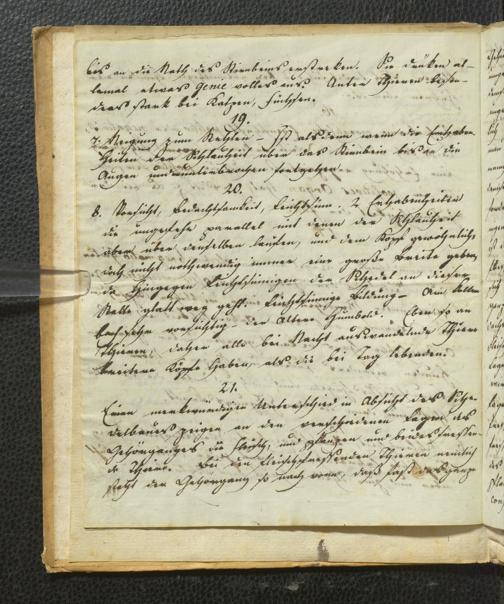 bis an die Nath des Stirnbeins erstrecken. Sie drüken al-
lemal etwas Genievolles aus. Unter Thieren beson-
ders stark bei Katzen, Füchsen.
19.
7. Neigung zum Stehlen – Ist als denn wenn die Erhaben-
heiten der Schlauheit über das Stirnbein bis an die
Augen ununterbrochen fortgehen.
20.
8. Vorsicht, Bedachtsamkeit, Leichtsinn. 2 Erhabenheiten
die ungefehr parallel mit denen der Schlauheit
aber über denselben laufen, und dem Kopf gewöhnlich
doch nicht nothwendig immer eine große Breite geben,
da hingegen Leichtsinnigen der Schedel an dieser
Stelle glatt weg geht. Leichtsinnige Bildung –
vorsichtig der ältere Humbold. Eben so an
Thieren, daher alle bei Nacht auswandelnde Thiere
breitere Köpfe haben, als die bei Tag lebenden.
21.
Einen merkwürdigen Unterschied in Absicht des Sche-
delbaues zeigen an den verschiedenen Lagen des
Gehörganges die Fleisch, und Pflanzen und beides fressen-
de Thiere. Bei den Fleischfressenden Thieren nemlich
steht der Gehörgang so nach vorn, daß fast das ganze